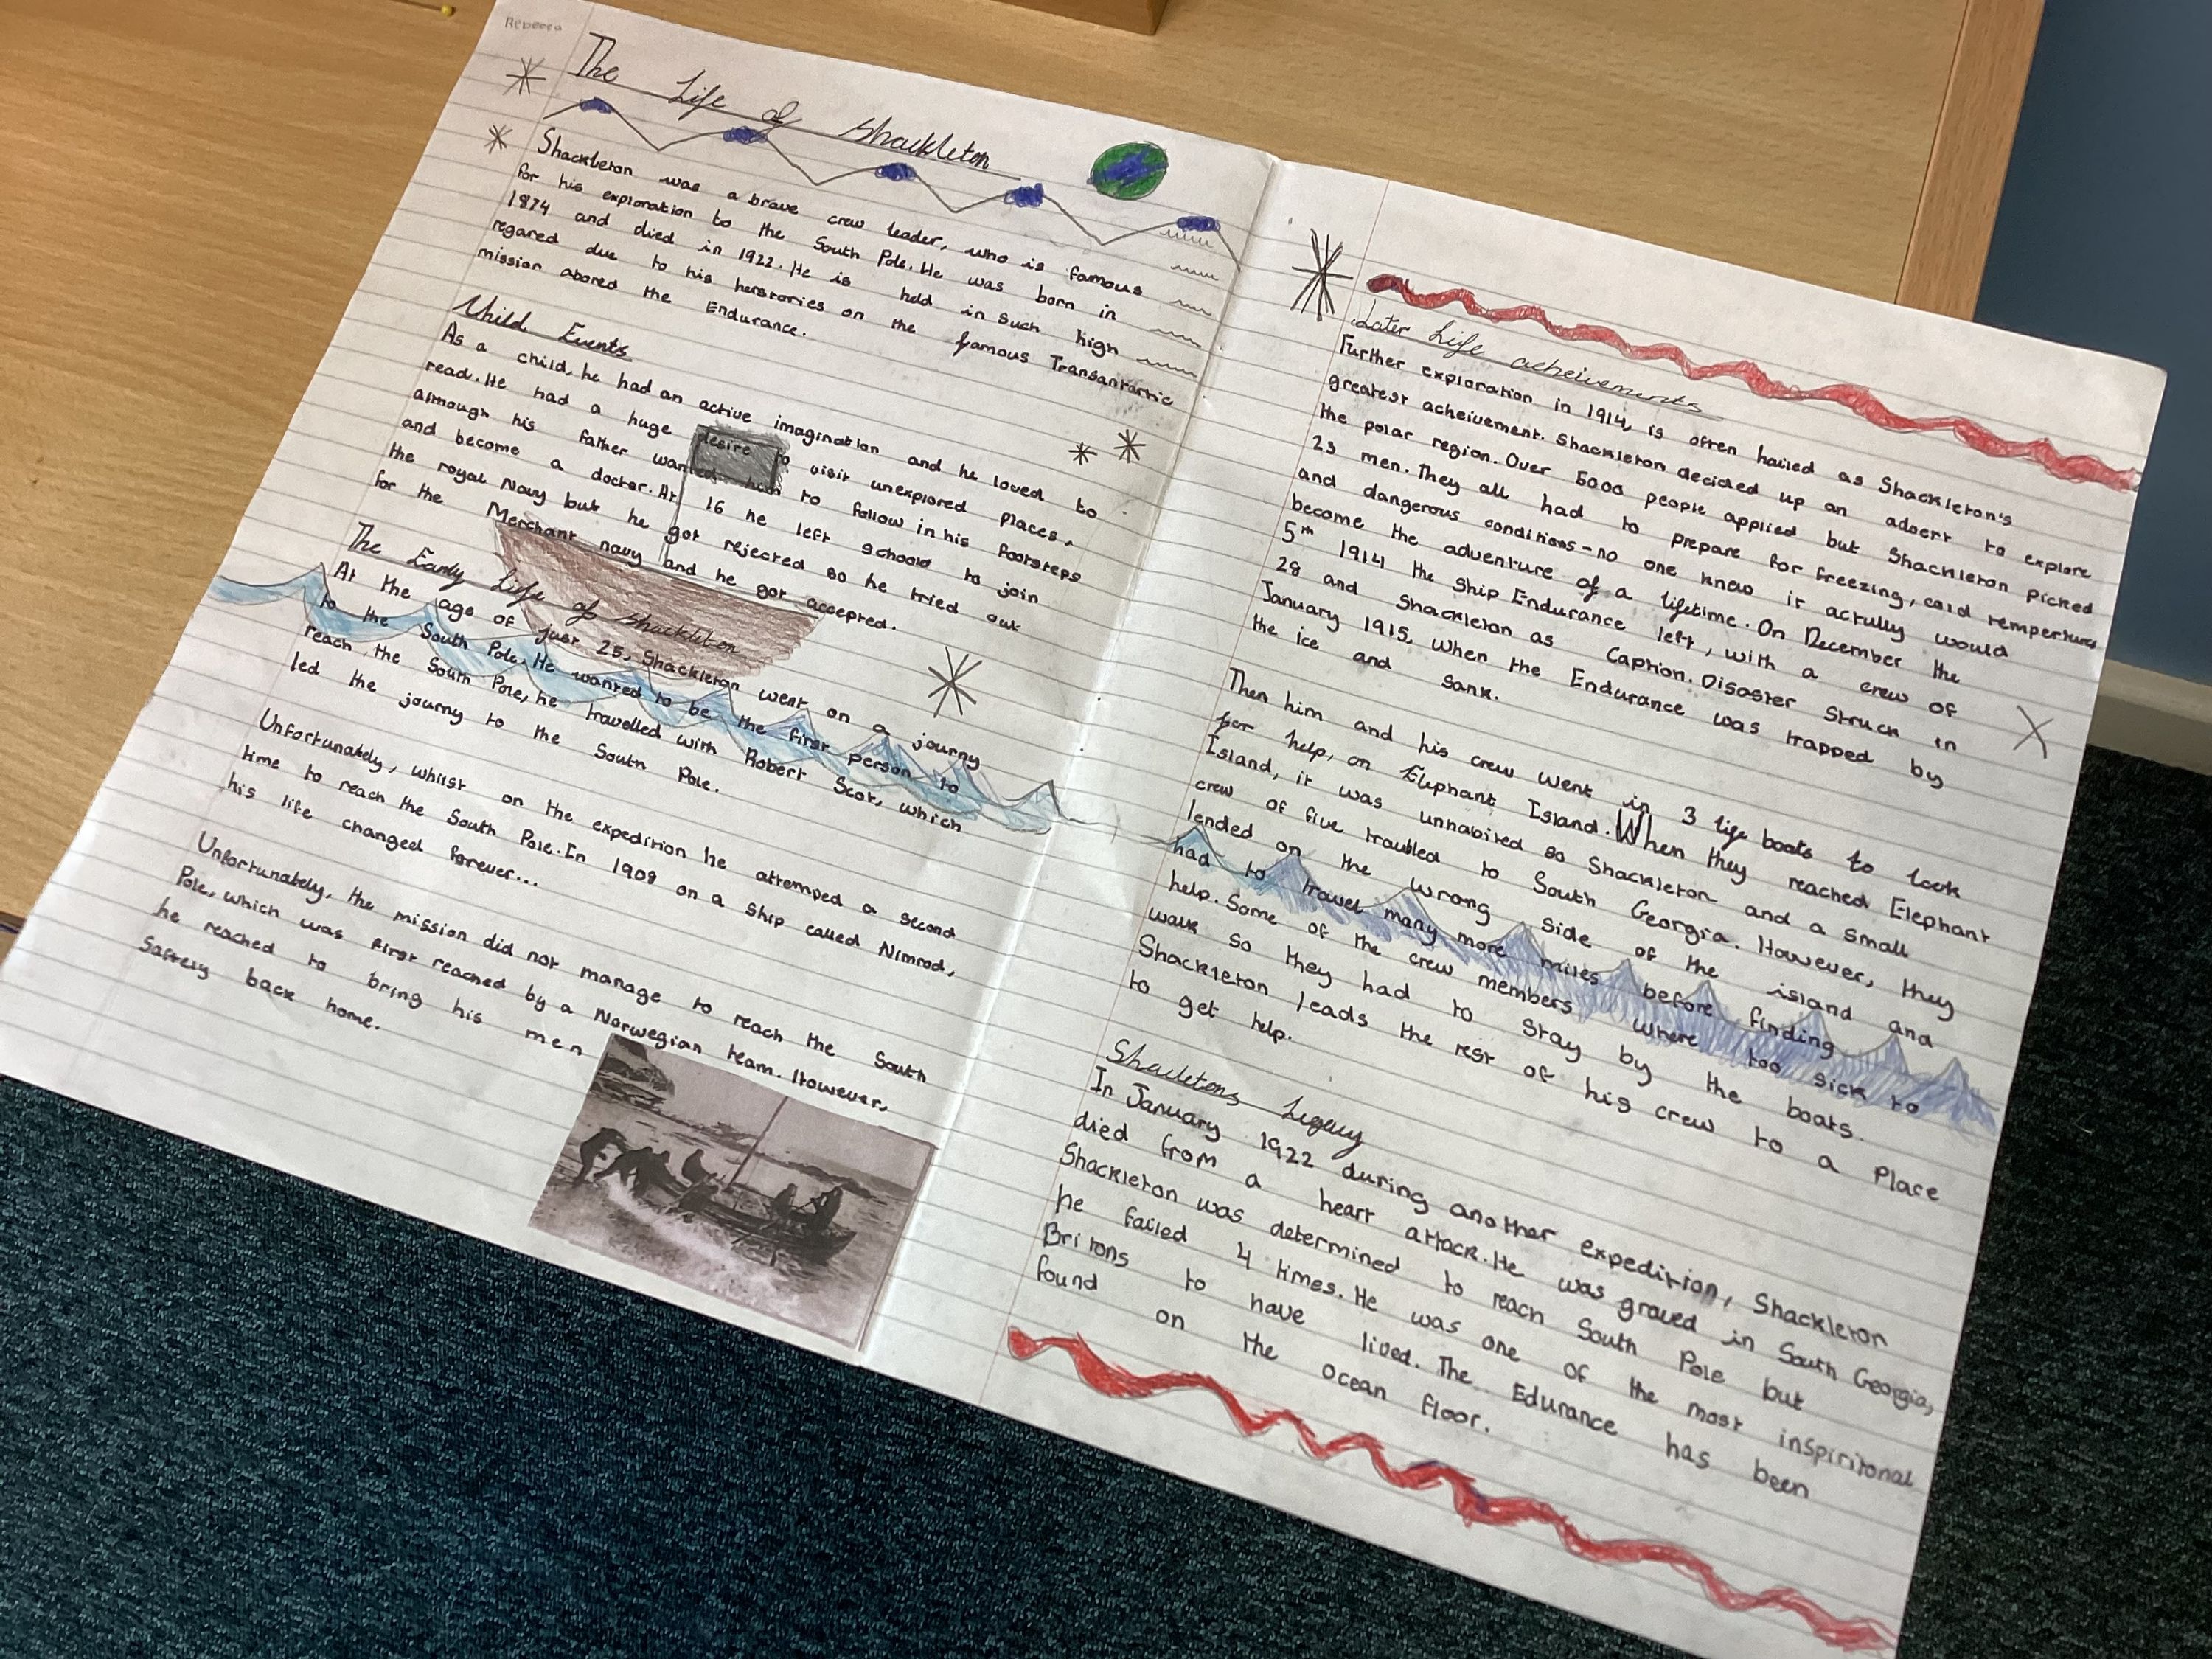 Rebecca
The Life of Shackleton
Shackleton was a brave crew leader, who is famous
for his exploration to the South Pole. He was born in
1874 and died in 1922. He is held in such high
regared due to his herstories on the famous Transantartic
mission abored the Endurance.
Child Events
As a child, he had an active imagination and he loved to
read. He had a huge desire to visit unexplored places,
although his father wanted him to follow in his footsteps
and become a doctor. At 16 he left schoold to join
the royal Navy but he got rejected so he tried out
for the Merchant navy and he got accepted.
The Early Life of Shackleton
At the age of just 25, Shackleton went on a journy
to the South Pole. He wanted to be the first person to
reach the South Pole, he travelled with Robert Scot, which
led the journy to the South Pole.
Unfortunately, whilst on the expedition he attemped a second
time to reach the South Pole. In 1908 on a ship called Nimrod,
his life changed forever...
Unfortunately, the mission did not manage to reach the South
Pole, which was first reached by a Norwegian team. However,
he reached to bring his men
saftely back home.
Later Life acheivements
Further exploration in 1914, is often hailed as Shackleton's
greatest acheivement. Shackleton decided up an advert to explore
the polar region. Over 5000 people applied but Shackleton picked
23 men. They all had to prepare for freezing, cold tempertures
and dangerous conditions - no one knew it actully would
become the adventure of a lifetime. On December the
5th 1914 the ship Endurance left, with a crew of
28 and Shackleton as Caption. Disaster struck in
January 1915, when the Endurance was trapped by
the ice and sank.
Then him and his crew went in 3 life boats to look
for help, on Elephant Island. When they reached Elephant
Island, it was unhabited so Shackleton and a small
crew of five troubled to South Georgia. However, they
lended on the wrong side of the island and
had to travel many more miles before finding
help. Some of the crew members where too sick to
walk so they had to stay by the boats.
Shackleton leads the rest of his crew to a place
to get help.
Shackletons Legacy
In January 1922 during another expedition, Shackleton
died from a heart attack. He was graved in South Georgia,
Shackleton was determined to reach South Pole but
he failed 4 times. He was one of the most inspiritonal
Britons to have lived. The Edurance has been
found on the ocean floor.